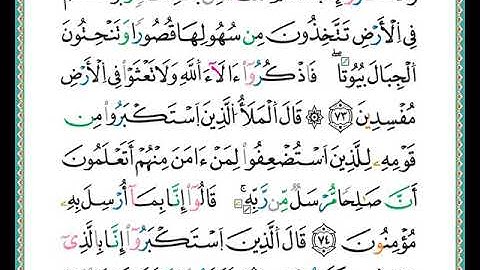 فِى اِ۬لْأَرْضِ تَتَّخِذُونَ مِن سُهُولِهَا قُصُورًا وَتَنْحِتُونَ
اَ۬لْجِبَالَ بُيُوتًا فَاذْكُرُوٓا۟ ءَالَآءَ اَ۬للَّهِ وَلَا تَعْثَوْا۟ فِى اِ۬لْأَرْضِ
مُفْسِدِينَ ٧٣ ۞ قَالَ اَ۬لْمَلَأُ اُ۬لَّذِينَ اَ۪سْتَكْبَرُوا۟ مِن
قَوْمِهِۦ لِلَّذِينَ اَ۟سْتُضْعِفُوا۟ لِمَنْ ءَامَنَ مِنْهُمُۥٓ أَتَعْلَمُونَ
أَنَّ صَٰلِحًا مُّرْسَلٌ مِّن رَّبِّهِۦ قَالُوٓا۟ إِنَّا بِمَآ أُرْسِلَ بِهِۦ
مُؤْمِنُونَ ٧٤ قَالَ اَ۬لَّذِينَ اَ۪سْتَكْبَرُوٓا۟ إِنَّا بِالَّذِىٓ